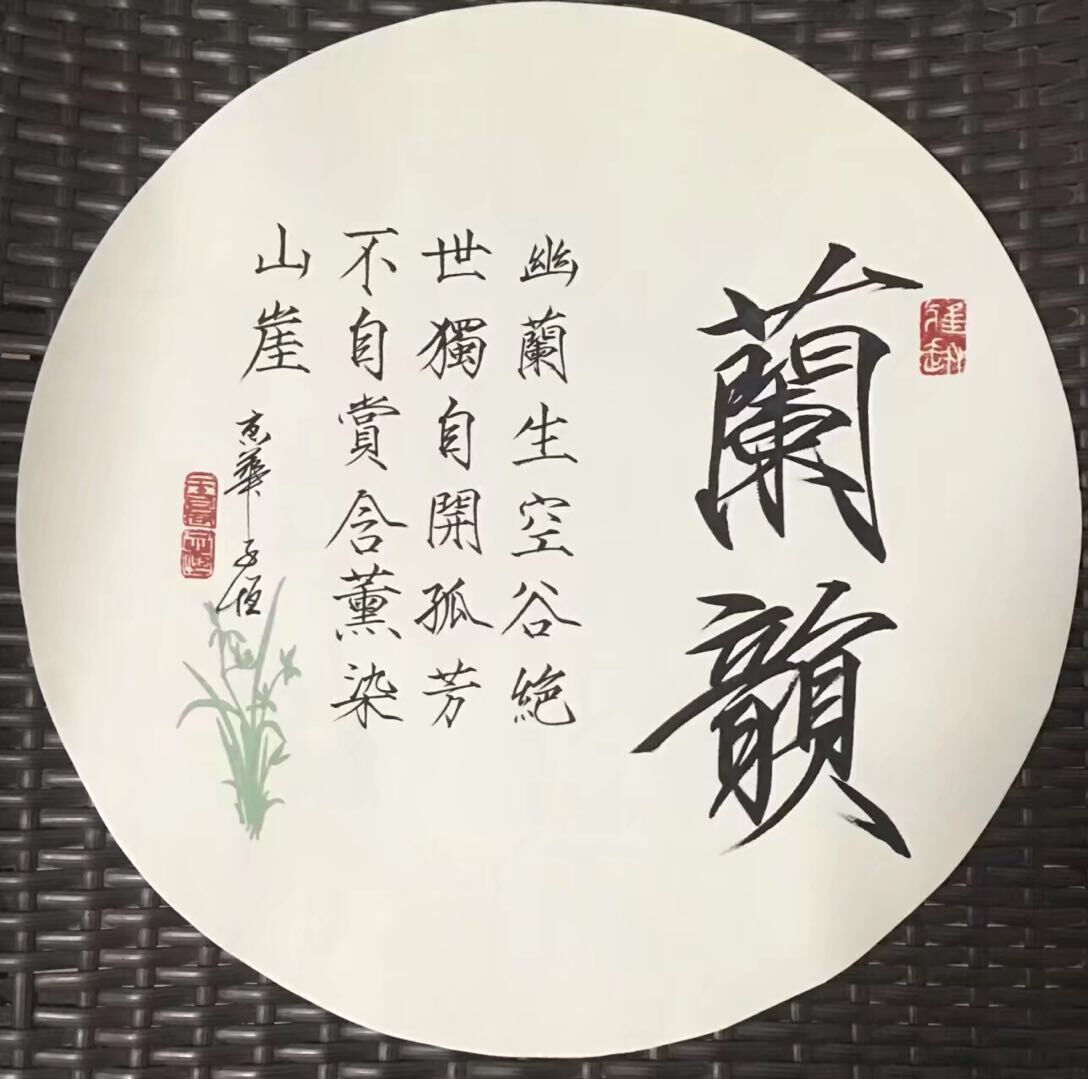 蘭韻
幽蘭生空谷絶
世獨自開孤芳
不自賞含薰染
山崖
華子恒